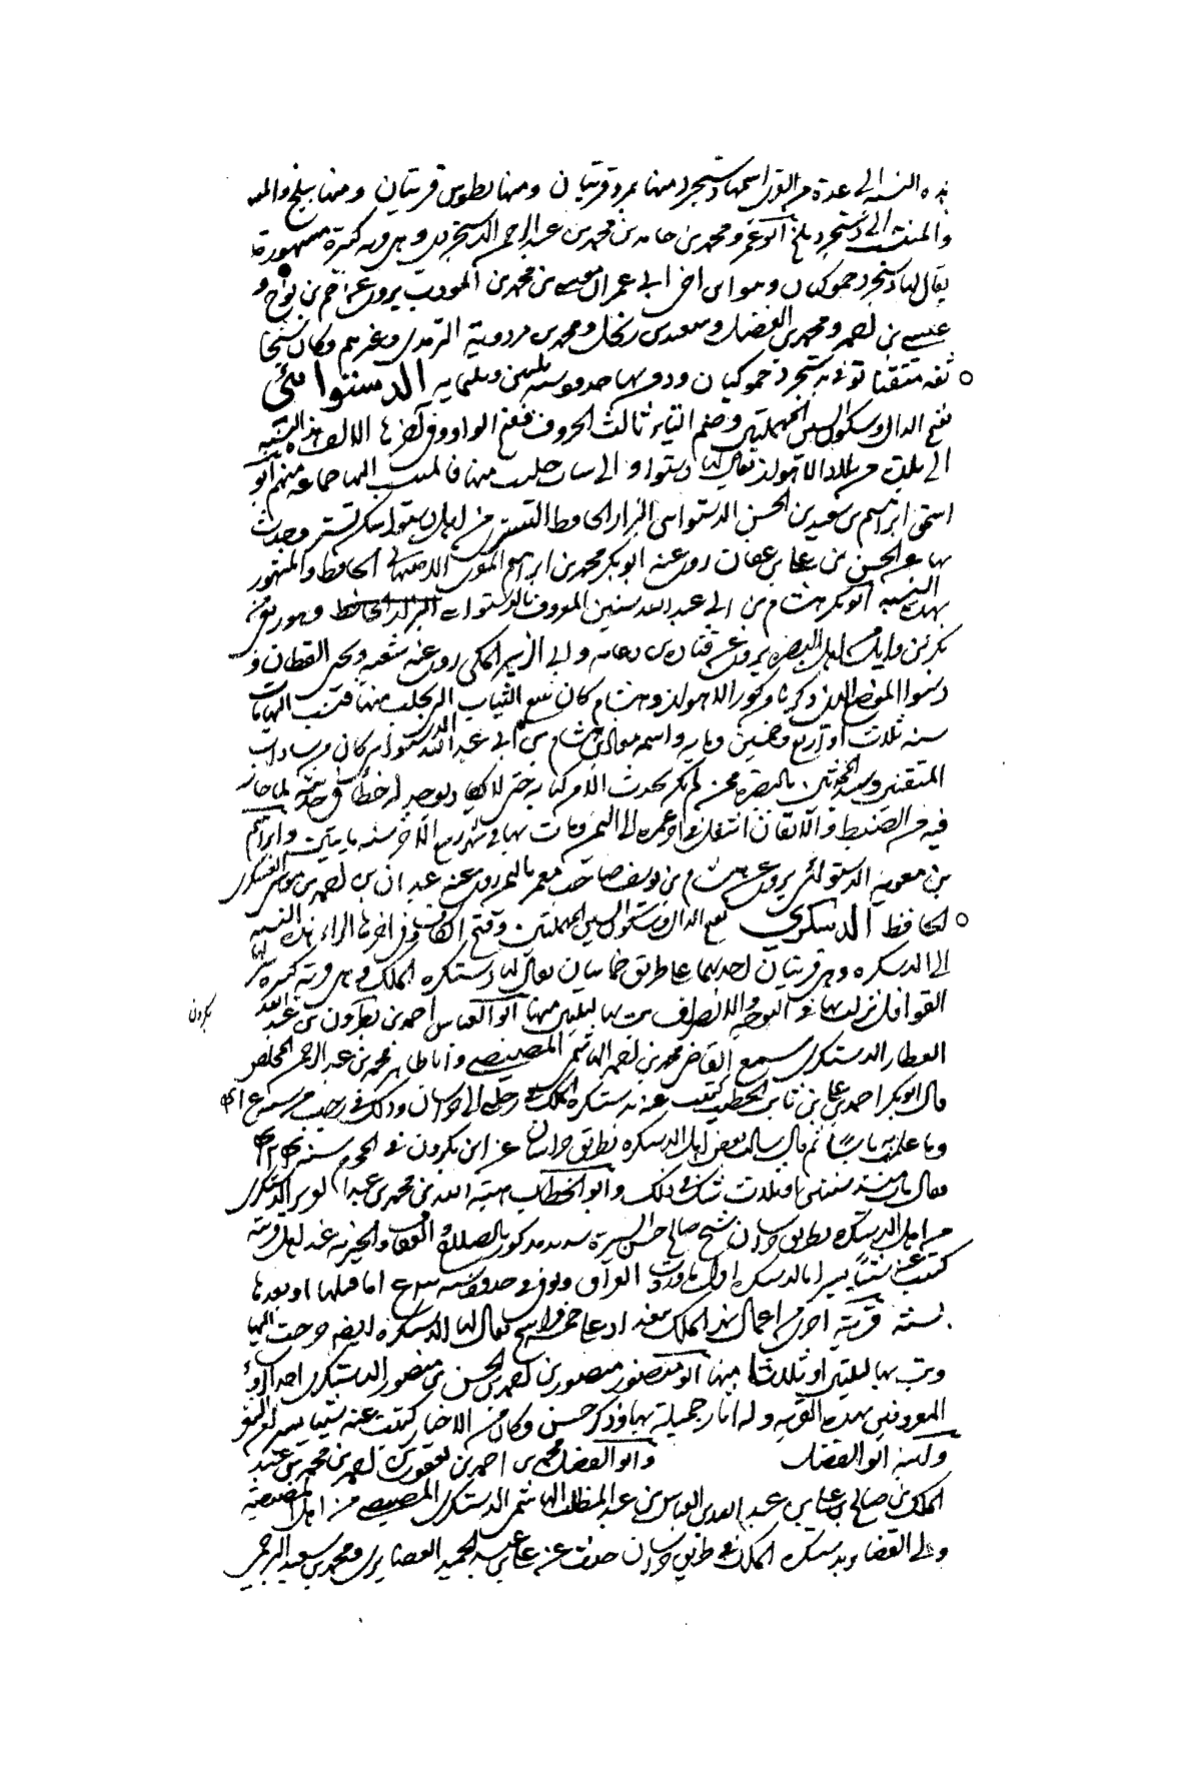 هذه النسبة الى عدة من القرى اسمها دستجرد منها بمرو قريتان ومنها بطوس قريتان ومنها ببلخ والمشهور
والمنتسب الى دستجرد بلخ ابو عمرو محمد بن حامد بن محمد بن عبد الرحمن الدستجردي وهي قرية كبيرة مشهورة
يقال لها دستجرد جموكيان وهو ابن اخي ابي عمران موسى بن محمد بن المؤدب يروي عن حم بن نوح و
عيسى بن احمد ومحمد بن الفضيل وسعيد بن ومحمد بن مردويه الترمذي وغيرهم وكان شيخا
ثقة متقنا توفي بدستجرد جموكيان ودفن بها في حدود سنة وثلثمايه الدستوائي
بفتح الدال وسكون السين المهملتين وضم التاء ثالث الحروف وفتح الواو وفي آخرها الالف هذه النسبة
الى بلدة من بلاد الاهواز يقال لها دستوا والى ثياب جلبت منها فالمنتسب اليها جماعة منهم ابو
اسحق ابراهيم بن سعيد بن الحسن الدستوائي البزاز الحافظ التستري من اهل دستوا سكن تستر وحدث
بها عن الحسن بن علي بن عفان روى عنه ابو بكر محمد بن ابراهيم المقري الاصبهاني الحافظ والمشهور
بهذه النسبة ابو بكر هشام بن ابي عبد الله سنبر المعروف بالدستوائي البزاز الحافظ وهو ربعي من
بكر بن وايل من اهل البصرة يروي عن قتادة بن دعامة وابي الزبير المكي روى عنه شعبة ويحيى القطان و
دستوا الموضع الذي ذكرناه من كور الاهواز وهشام كان يبيع الثياب التي تجلب منها فنسب اليها مات
سنة ثلاث او اربع وخمسين ومايه واسمه معاذ بن هشام بن ابي عبد الله الدستوائي كان من سادات
المتقنين وسيد المحدثين بالبصرة ممن لم يكن يحدث الا من كتابه حتى لا يكاد يوجد له خطأ في حديثه لما كان
فيه من الضبط والاتقان انتقل في آخر عمره الى اليمن ومات بها في شهر ربيع الآخر سنة مايتين وابراهيم
بن معوية الدستوائي يروي عن هشام بن يوسف صاحب معمر باليمن روى عنه عبدان بن احمد بن موسى العسكري
الحافظ الدسكري بفتح الدال وسكون السين المهملتين وفتح الكاف وفي آخرها الراء هذه النسبة
الى الدسكرة وهي قريتان احديهما على طريق خراسان يقال لها دسكرة الملك وهي قرية كبيرة
القوافل نزلت بها في التوجه والانصراف بت بها ليلتين منها ابو العباس احمد بن بكرون بن عبد الله
بكرون
العطار الدسكري سمع القاضي محمد بن احمد الهاشمي المصيصي وابا طاهر محمد بن عبد الرحمن المخلص
قال ابو بكر احمد بن علي بن ثابت الخطيب كتبت عنه بدسكرة الملك في رحلتي الى خراسان وذلك في رجب من سنة
وما علمت به باسا ثم قال سالت بعض اهل الدسكرة بطريق خراسان عن ابن بكرون في المحرم سنة
فقال مات منذ سنتين او ثلاث شك في ذلك وابو الخطاب هبة الله بن محمد بن عبد العزيز الدسكري
من اهل الدسكرة بطريق خراسان شيخ صالح حسن السيرة مذكور بالصلاح والعفاف والخيرية عند اهل قريته
كتبت عنه شيئا يسيرا بالدسكرة اول ما وردت العراق وتوفي في حدود سنة اما قبلها او بعدها
بسنة قرية اخرى من اعمال نهر الملك ببغداد على خمس فراسخ يقال لها الدسكرة ايضا خرجت اليها
وبت بها ليلتين او ثلاثا منها ابو منصور منصور بن احمد بن الحسن بن منصور الدسكري احد الرؤساء
المعروفين بهذه القرية وله آثار جميلة بها وذكر حسن وكان من الاخيار كتبت عنه شيئا يسيرا
وكنيته ابو الفضل وابو الفضل محمد بن احمد بن يعقوب بن احمد بن محمد بن عبد
الملك بن صالح بن علي بن عبد الله بن العباس بن عبد المطلب الهاشمي الدسكري المصيصي من اهل المصيصة
ولي القضاء بدسكرة الملك في طريق خراسان حدث عن علي بن عبد الحميد الغضايري ومحمد بن سعيد الترخمي